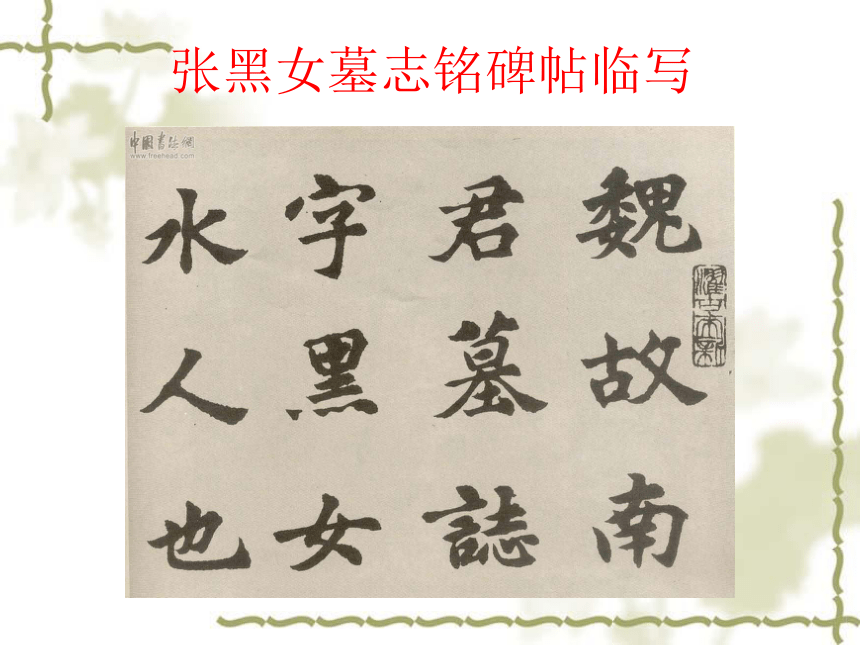 张黑女墓志铭碑帖临写
中國書法網
www.freehead.com
魏故南
君墓誌
字黑女
水人也